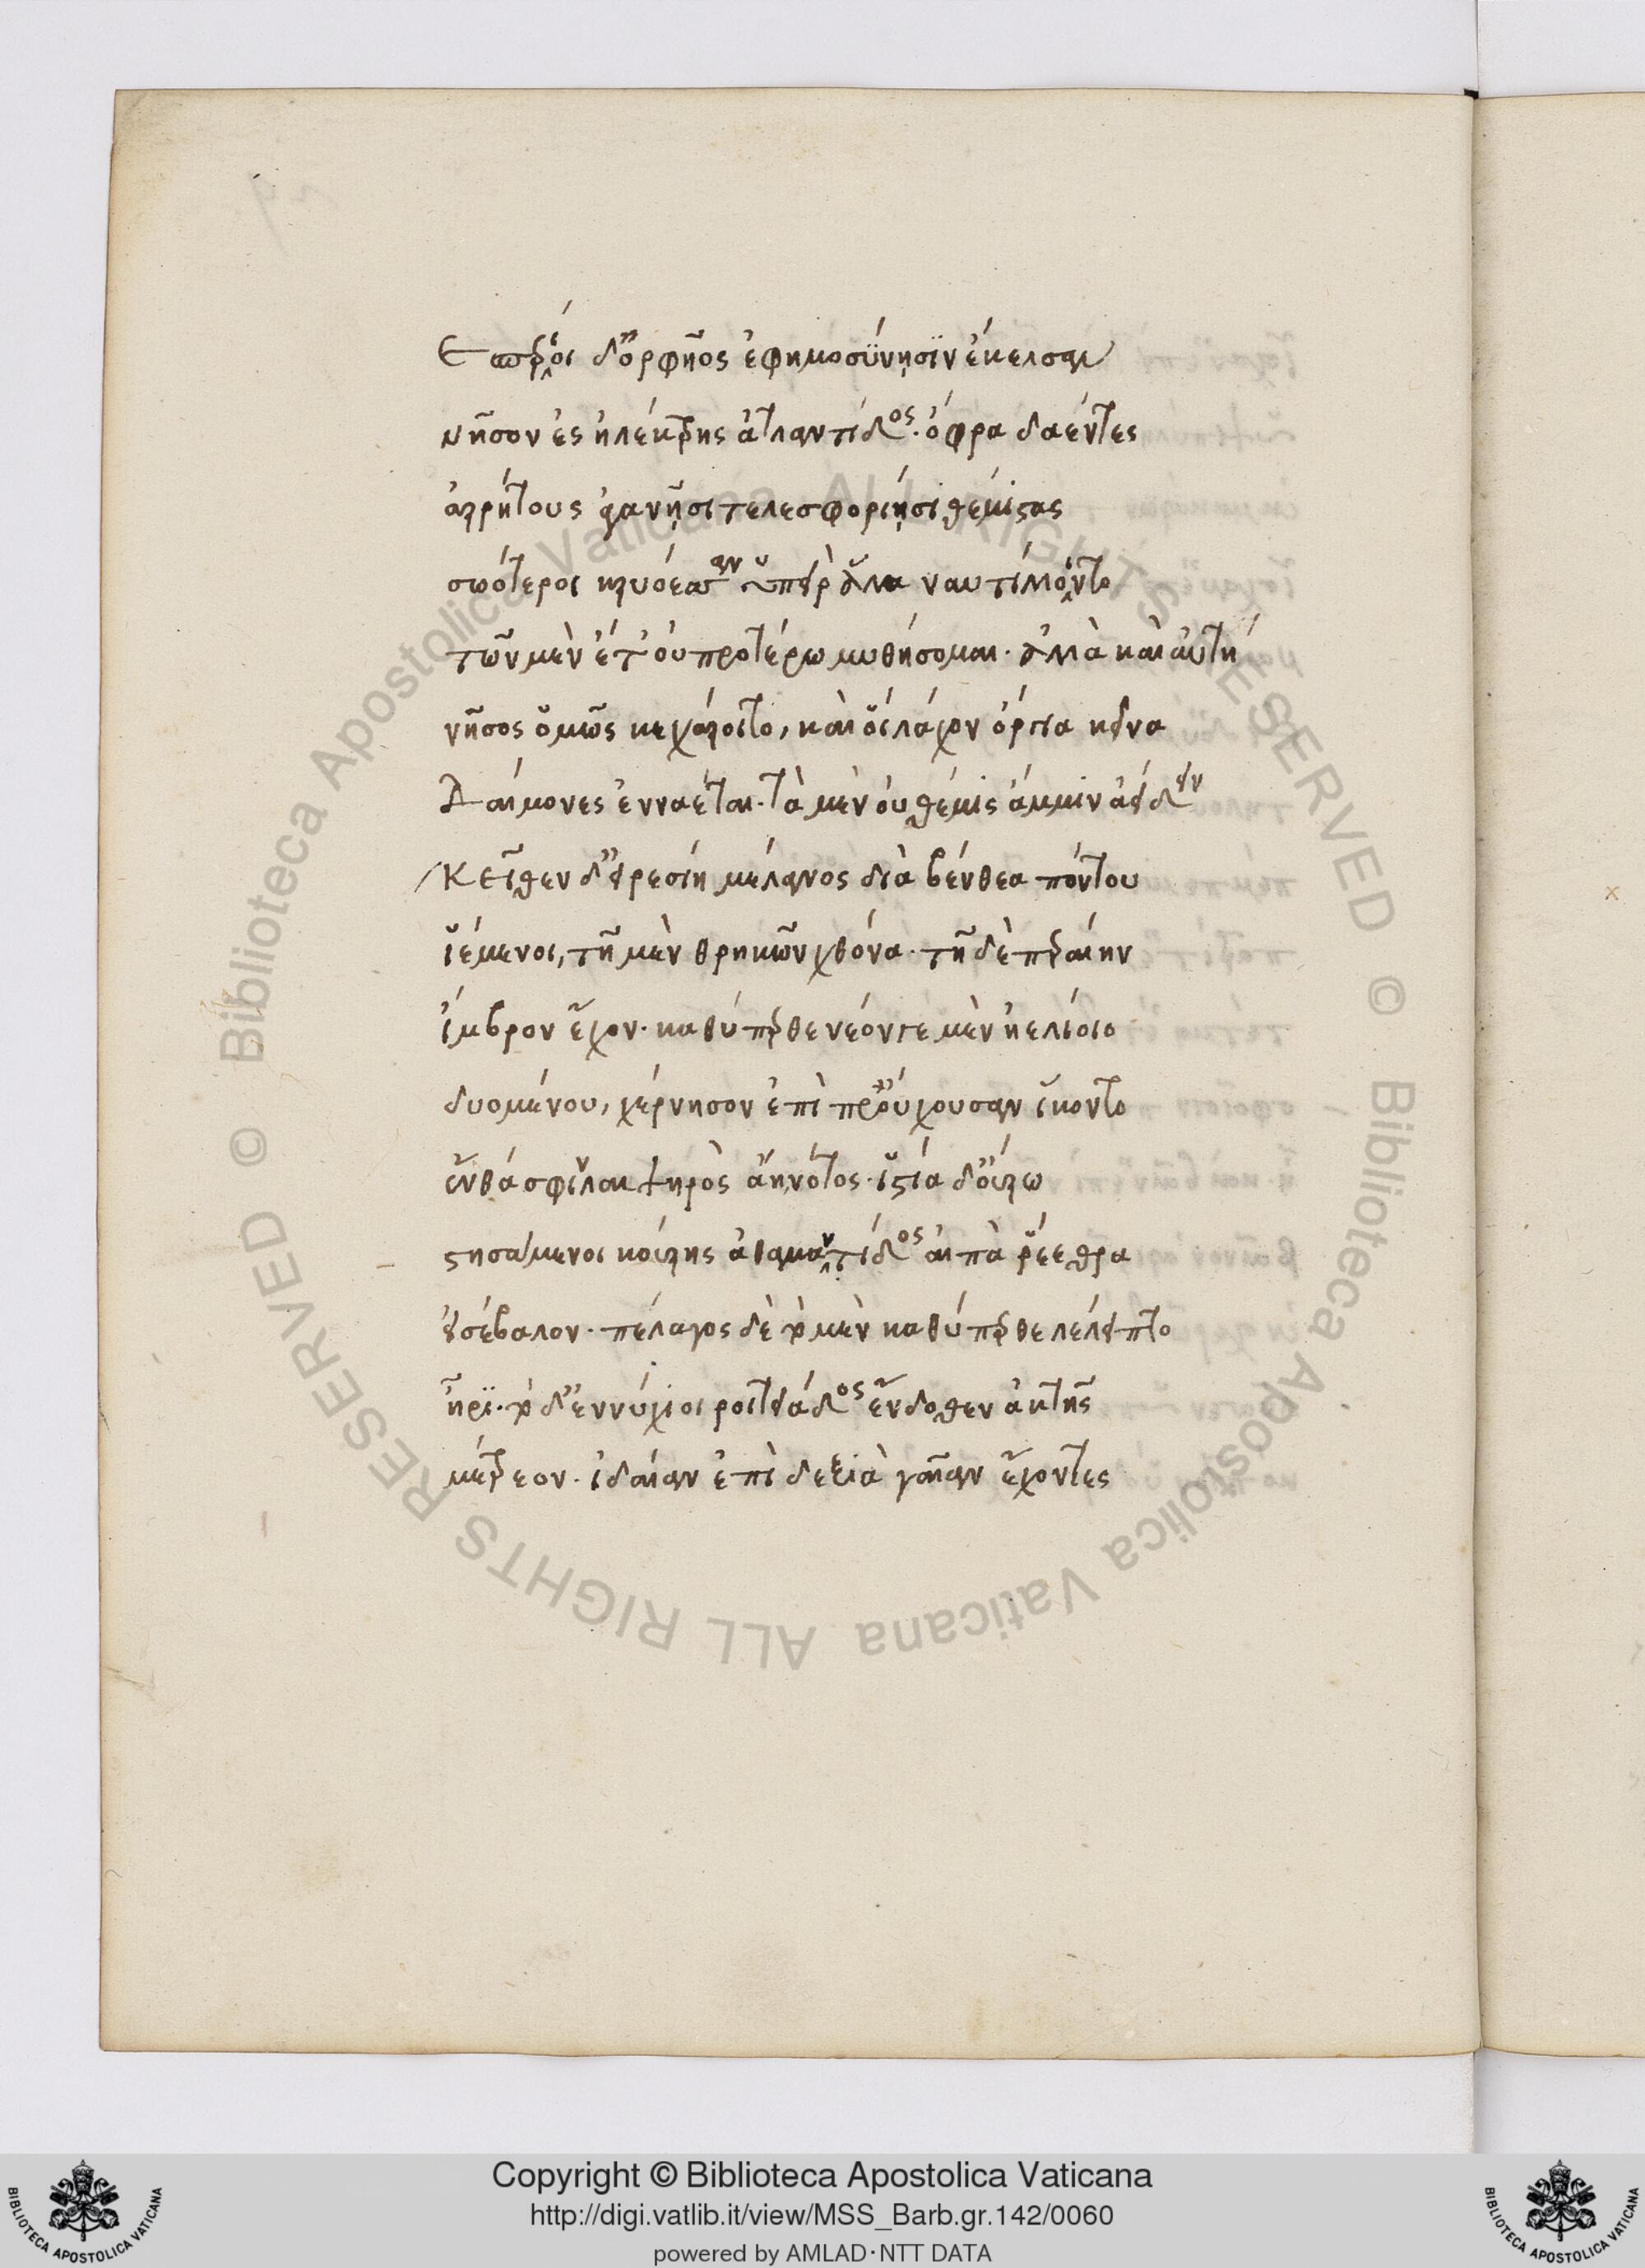 Εσπέριοι δ' ὀρφῆος ἐφημοσύνῃσιν ἔκελσαν
νῆσον ἐς ἠλέκτρης ἀτλαντίδος· ὄφρα δαέντες
ἀρρήτους ἀγανῇσι τελεσφορίῃσι θέμιστας
σωότεροι κρυόεσσαν ὑπεὶρ ἅλα ναυτίλλοιντο
τῶν μὲν ἔτ' οὐ προτέρω μυθήσομαι· ἀλλὰ καὶ αὐτὴ
νῆσος ὁμῶς κεχάροιτο, καὶ οἳ λάχον ὄργια κεῖνα
Δαίμονες ἐνναέται· τὰ μὲν οὐ θέμις ἄμμιν ἀείδειν
Κεῖθεν δ' εἰρεσίῃ μέλανος διὰ βένθεα πόντου
ἱέμενοι, τῇ μὲν θρηκῶν χθόνα· τῇ δὲ περαίην
ἴμβρον ἔχον· καθύπερθε νέον γε μὲν ἠελίοιο
δυομένου, χέρνησον ἐπὶ προὔχουσαν ἵκοντο
ἔνθα σφιν λαιψηρὸς ἄη νότος· ἱστία δ' οὔρῳ
στησάμενοι κούρης ἀθαμαντίδος αἰπὰ ῥέεθρα
εἰσέβαλον· πέλαγος δὲ τὸ μὲν καθύπερθε λέλειπτο
ἦρι· τὸ δ' ἐννύχιοι ῥοιτειάδος ἔνδοθεν ἀκτῆς
μέτρεον· ἰδαίαν ἐπὶ δεξιὰ γαῖαν ἔχοντες
Copyright © Biblioteca Apostolica Vaticana
http://digi.vatlib.it/view/MSS_Barb.gr.142/0060
powered by AMLAD·NTT DATA